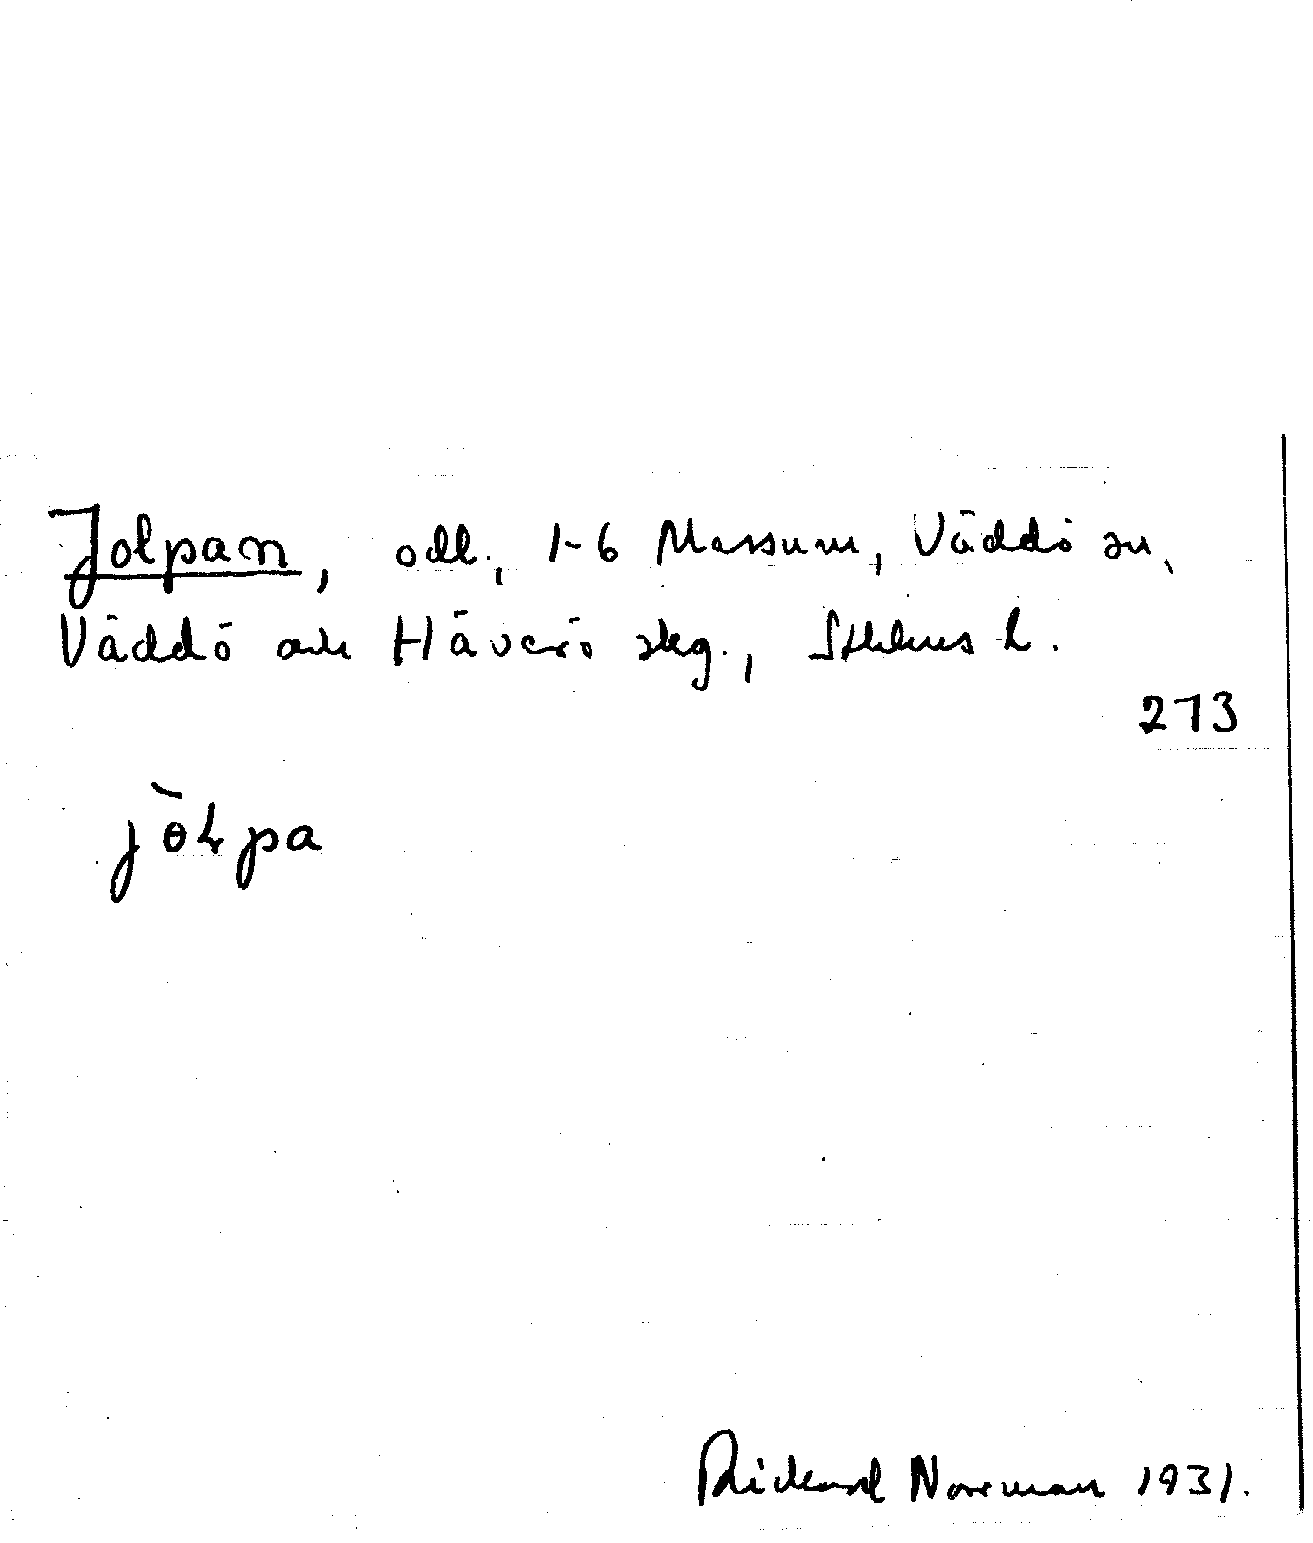 Jolpan, odl., 1-6 Massum, Väddö sn,
Väddö och Häverö skg., Sthlms L.
273
jòƚpa
Rickard Norman 1931.